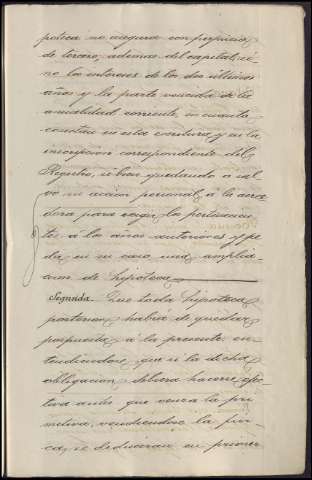 poteca no asegura con perjuicio
de tercero, ademas del capital, si-
no los intereses de los dos últimos
años y la parte vencida de la
anualidad corriente, en cuanto
constan en esta escritura y en la
inscripcion correspondiente del
Registro, si bien quedando a sal-
vo su accion personal á la acree-
dora para exigir los pertenecien-
tes á los años anteriores y pe-
dir en su caso una amplia-
cion de hipoteca
Segunda. Que toda hipoteca
posterior habrá de quedar
pospuesta á la presente en-
tendiendose que si la dicha
obligacion debiera hacerse efec-
tiva antes que venza la pri-
mitiva, vendiendose la fin-
ca, se deduciran en primer